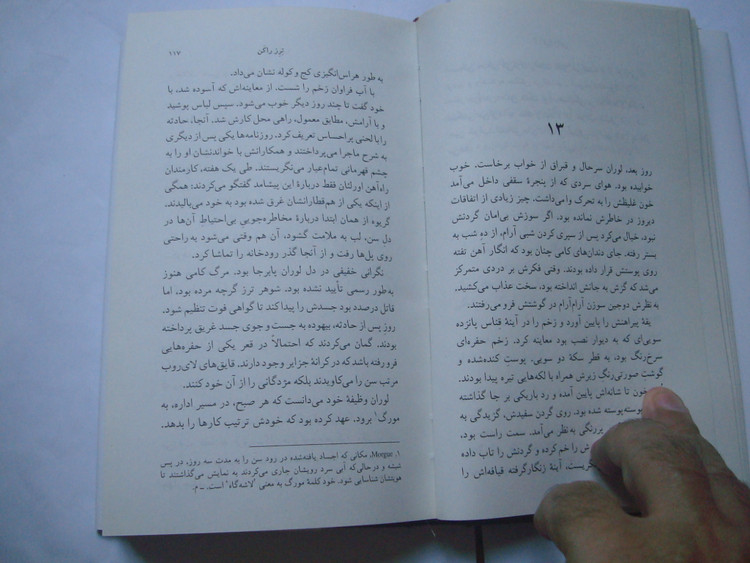 ۱۳
روز بعد، لوران سرحال و قبراق از خواب برخاست. خوب
خوابیده بود. هوای سردی که از پنجرهٔ سقفی داخل می‌آمد
خون غلیظش را به تحرک وامی‌داشت. چیز زیادی از اتفاقات
دیروز در خاطرش نمانده بود. اگر سوزش بی‌امان گردنش
نبود، خیال می‌کرد پس از سپری کردن شبی آرام، از ده شب به
بستر رفته. جای دندان‌های کامی چنان بود که انگار آهن تفته
روی پوستش قرار داده بودند. وقتی فکرش بر دردی متمرکز
می‌شد که گزش به جانش انداخته بود، سخت عذاب می‌کشید.
به نظرش دوجین سوزن آرام‌آرام در گوشتش فرو می‌رفتند.
یقهٔ پیراهنش را پایین آورد و زخم را در آینهٔ قناس پانزده
سویی‌ای که به دیوار نصب بود معاینه کرد. زخم حفره‌ای
سرخ‌رنگ بود، به قطر سکهٔ دو سویی. پوستْ کنده‌شده و
گوشتِ صورتی‌رنگ زیرش همراه با لکه‌هایی تیره پیدا بودند.
خون تا شانه‌اش پایین آمده و رد باریکی بر جا گذاشته
پوسته‌پوسته شده بود. روی گردن سفیدش، گزیدگی به
پررنگی به‌نظر می‌آمد. سمت راست بود،
را خم کرده و گردنش را تاب داده
آینهٔ زنگارگرفته قیافه‌اش را
ترز راکن
۱۱۷
به طور هراس‌انگیزی کج و کوله نشان می‌داد.
با آب فراوان زخم را شست. از معاینه‌اش که آسوده شد، با
خود گفت تا چند روز دیگر خوب می‌شود. سپس لباس پوشید
و با آرامش، مطابق معمول، راهی محل کارش شد. آنجا، حادثه
را با لحنی پراحساس تعریف کرد. روزنامه‌ها یکی پس از دیگری
به شرح ماجرا می‌پرداختند و همکارانش با خواندنشان او را به
چشم قهرمانی تمام‌عیار می‌نگریستند. طی یک هفته، کارمندان
راه‌آهن اورلئان فقط دربارهٔ این پیشامد گفتگو می‌کردند: همگی
از اینکه یکی از هم‌قطارانشان غرق شده بود به خود می‌بالیدند.
گریوه از همان ابتدا دربارهٔ مخاطره‌جوییِ بی‌احتیاطِ آن‌ها در
دل سن، لب به ملامت گشود، آن هم وقتی می‌شود به راحتی
روی پل‌ها رفت و از آنجا گذر رودخانه را تماشا کرد.
نگرانی خفیفی در دل لوران پابرجا بود. مرگ کامی هنوز
به‌طور رسمی تأیید نشده بود. شوهر ترز گرچه مرده بود، اما
قاتل درصدد بود جسدش را پیدا کند تا گواهی فوت تنظیم شود.
روز پس از حادثه، بیهوده به جست و جوی جسد غریق پرداخته
بودند. گمان می‌کردند که احتمالاً در قعر یکی از حفره‌هایی
فرو رفته باشد که در کرانهٔ جزایر وجود دارند. قایق‌های لای‌روب
مرتب سن را می‌کاویدند بلکه مژدگانی را از آن خود کنند.
لوران وظیفهٔ خود می‌دانست که هر صبح، در مسیر اداره، به
مورگ۱ برود. عهد کرده بود که خودش ترتیب کارها را بدهد.
۱. Morgue، مکانی که اجساد یافته‌شده در رود سن را به مدت سه روز، در پس
شیشه و درحالی‌که آبی سرد رویشان جاری می‌کردند به نمایش می‌گذاشتند تا
هویتشان شناسایی شود. خود کلمهٔ مورگ به معنی «لاشه‌گاه» است. ـ م.